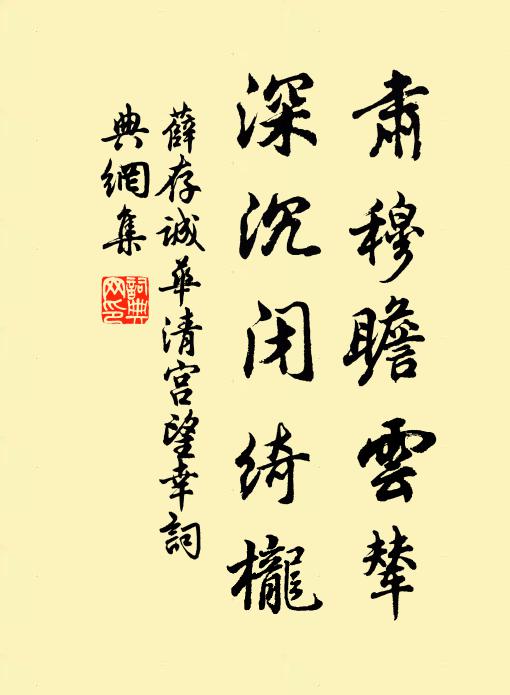 肅穆瞻雲輦
深沉閉綺櫳
薛存誠華清宮望幸詞
典網集
詞典网印